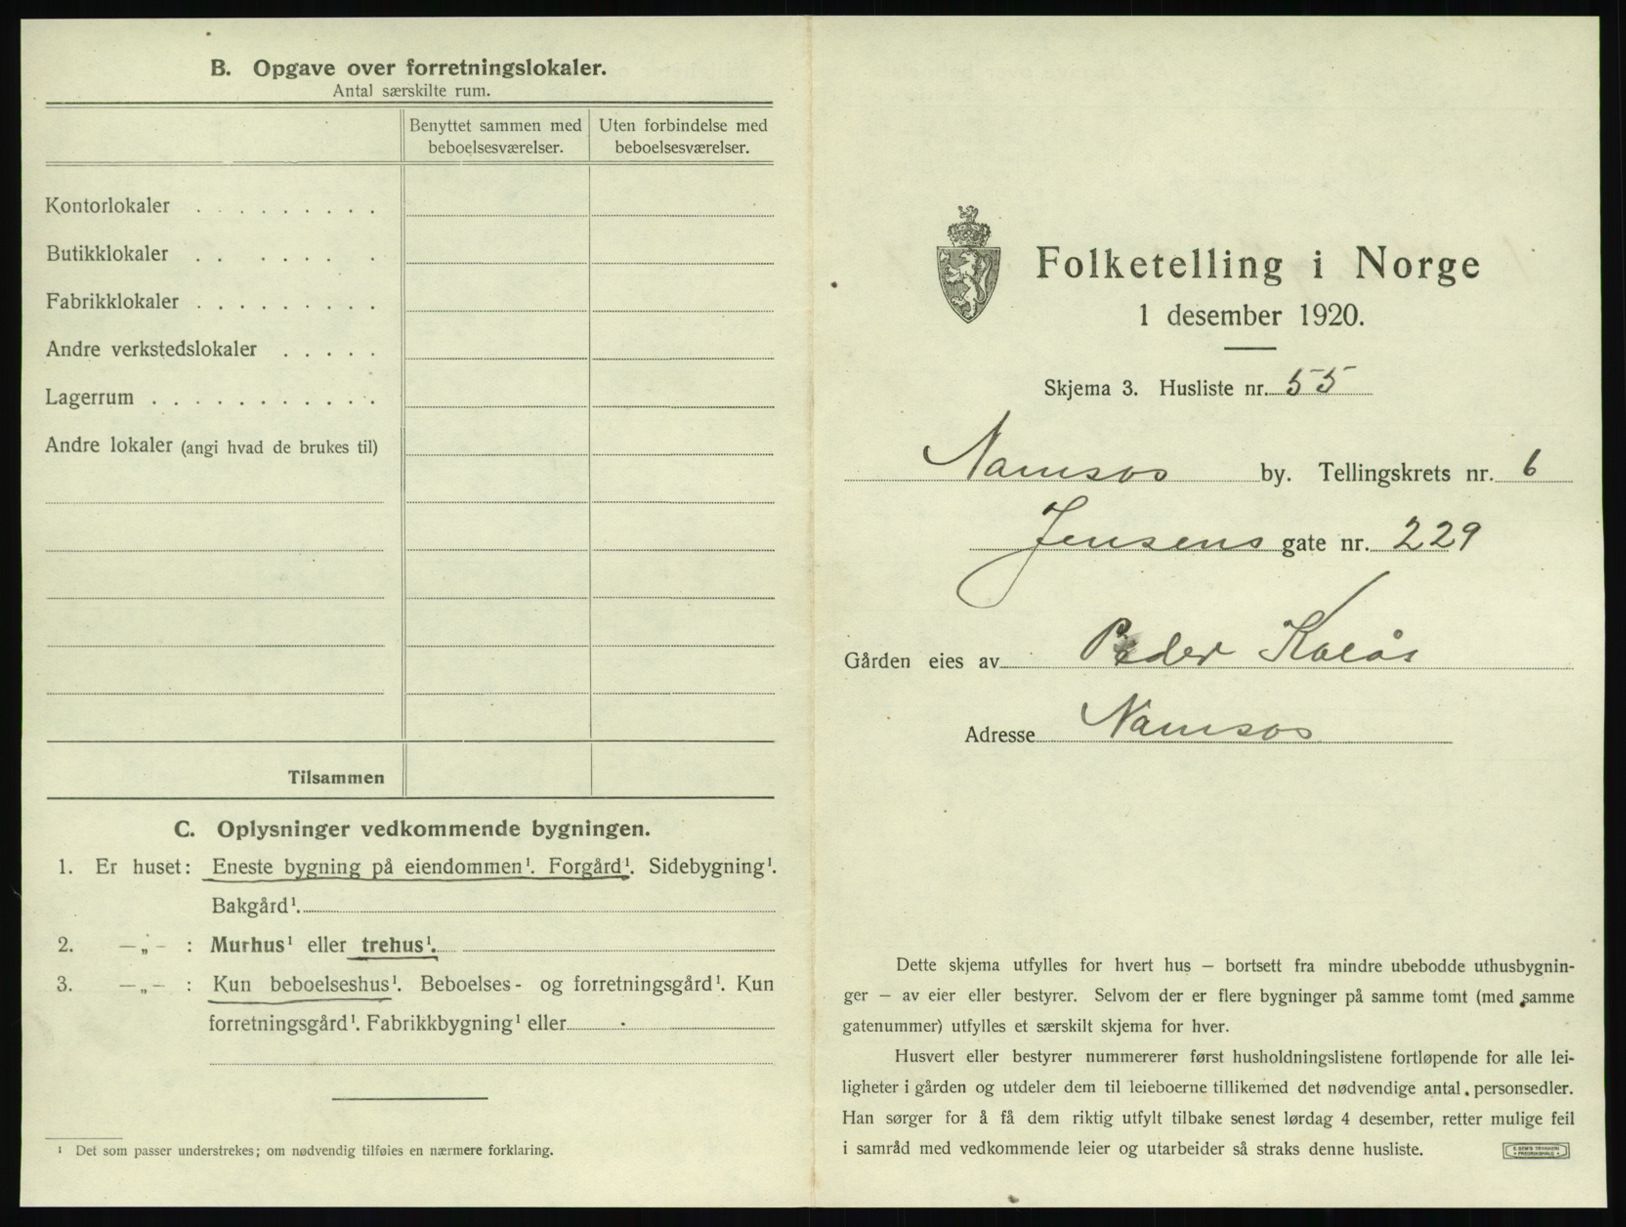 B. Opgave over forretningslokaler.
Antal særskilte rum.
Benyttet sammen med beboelsesværelser.
Uten forbindelse med beboelsesværelser.
Kontorlokaler . . . . . . . . .
Butikklokaler . . . . . . .
Fabrikklokaler . . . . . . . . .
Andre verkstedslokaler . . . . .
Lagerrum . . . . . . . . . . .
Andre lokaler (angi hvad de brukes til)
Tilsammen
C. Oplysninger vedkommende bygningen.
1. Er huset: Eneste bygning på eiendommen¹. Forgård¹. Sidebygning¹.
Bakgård¹.
2. —„— : Murhus¹ eller trehus¹.
3. —„— : Kun beboelseshus¹. Beboelses- og forretningsgård¹. Kun
forretningsgård¹. Fabrikkbygning¹ eller
¹ Det som passer understrekes; om nødvendig tilføies en nærmere forklaring.
Folketelling i Norge
1 desember 1920.
Skjema 3. Husliste nr. 55
Namsos by. Tellingskrets nr. 6
Jensens gate nr. 229
Gården eies av Peder
Adresse Namsos
Dette skjema utfylles for hvert hus — bortsett fra mindre ubebodde uthusbygnin-
ger — av eier eller bestyrer. Selvom der er flere bygninger på samme tomt (med samme
gatenummer) utfylles et særskilt skjema for hver.
Husvert eller bestyrer nummererer først husholdningslistene fortløpende for alle lei-
ligheter i gården og utdeler dem til leieboerne tillikemed det nødvendige antal personsedler.
Han sørger for å få dem riktig utfylt tilbake senest lørdag 4 desember, retter mulige feil
i samråd med vedkommende leier og utarbeider så straks denne husliste.